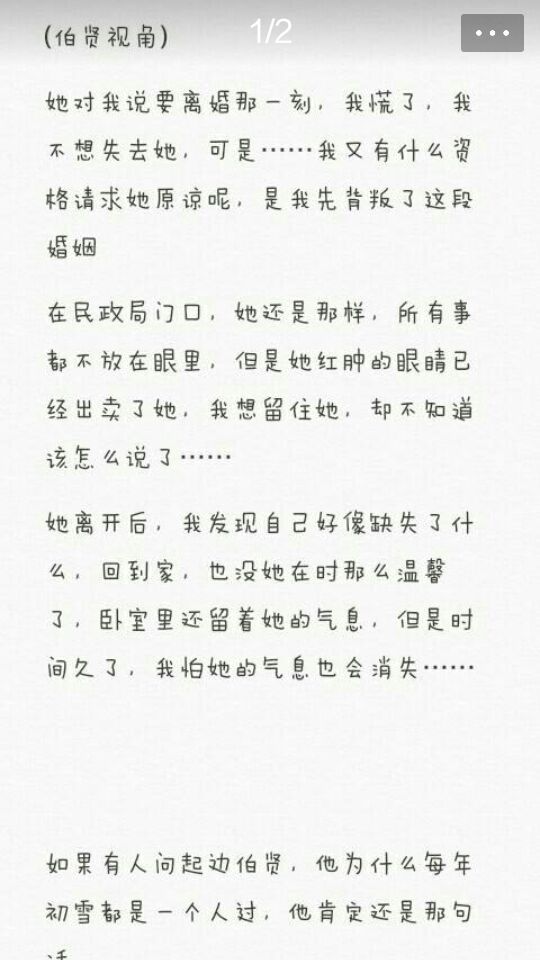 1/2
(伯贤视角)
她对我说要离婚那一刻，我慌了，我
不想失去她，可是……我又有什么资
格请求她原谅呢，是我先背叛了这段
婚姻
在民政局门口，她还是那样，所有事
都不放在眼里，但是她红肿的眼睛已
经出卖了她，我想留住她，却不知道
该怎么说了……
她离开后，我发现自己好像缺失了什
么，回到家，也没她在时那么温馨
了，卧室里还留着她的气息，但是时
间久了，我怕她的气息也会消失……
如果有人问起边伯贤，他为什么每年
初雪都是一个人过，他肯定还是那句